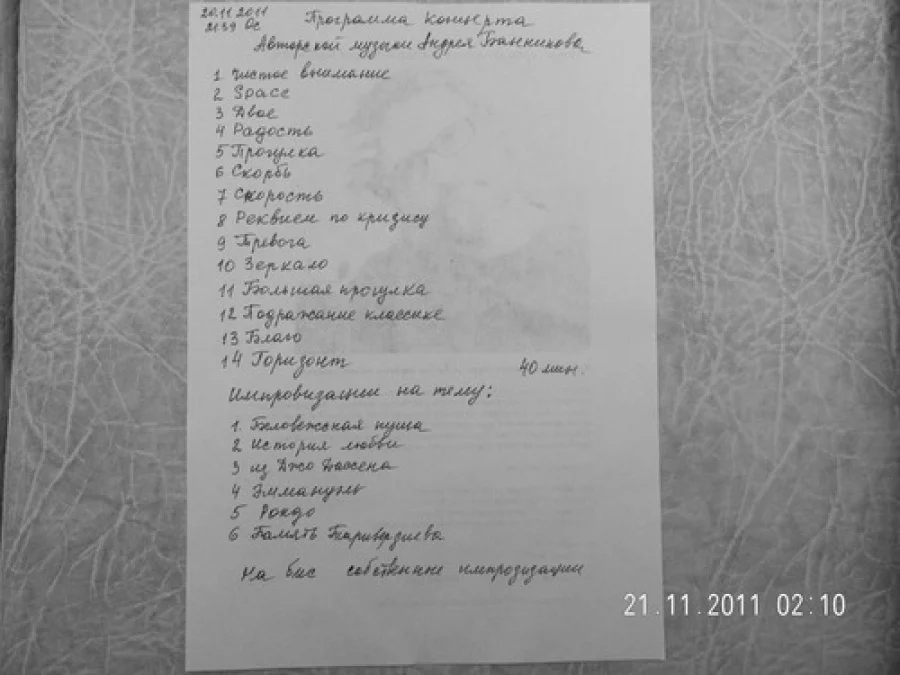 20.11.2011
21:39 Ос
Программа концерта
Авторской музыки Андрея Банникова
1 Чистое внимание
2 Space
3 Двое
4 Радость
5 Прогулка
6 Скорбь
7 Скорость
8 Реквием по кризису
9 Тревога
10 Зеркало
11 Большая прогулка
12 Подражание классике
13 Благо
14 Горизонт
40 мин.
Импровизации на тему:
1. Беловежская пуща
2 История любви
3 из Джо Дассена
4 Эммануэль
5 Рондо
6 Память Таривердиева
На бис собственные импровизации
21.11.2011 02:10